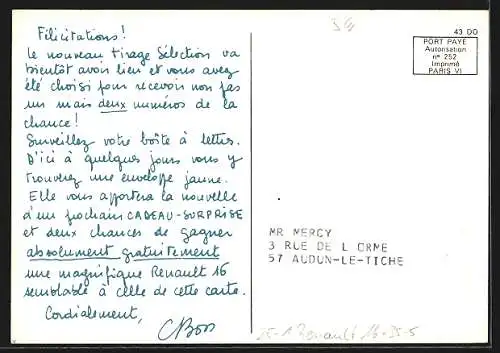 Félicitations!
Le nouveau tirage Sélection va
bientôt avoir lieu et vous avez
été choisi pour recevoir non pas
un mais deux numéros de la
chance!
Surveillez votre boîte à lettres.
D'ici à quelques jours vous y
trouverez une enveloppe jaune.
Elle vous apportera la nouvelle
d'un prochain CADEAU-SURPRISE
et deux chances de gagner
absolument gratuitement
une magnifique Renault 16
semblable à celle de cette carte.
Cordialement,
43 DO
PORT PAYÉ
Autorisation
n° 252
Imprimé
PARIS VI
MR MERCY
3 RUE DE L ORME
57 AUDUN-LE-TICHE
Renault 16